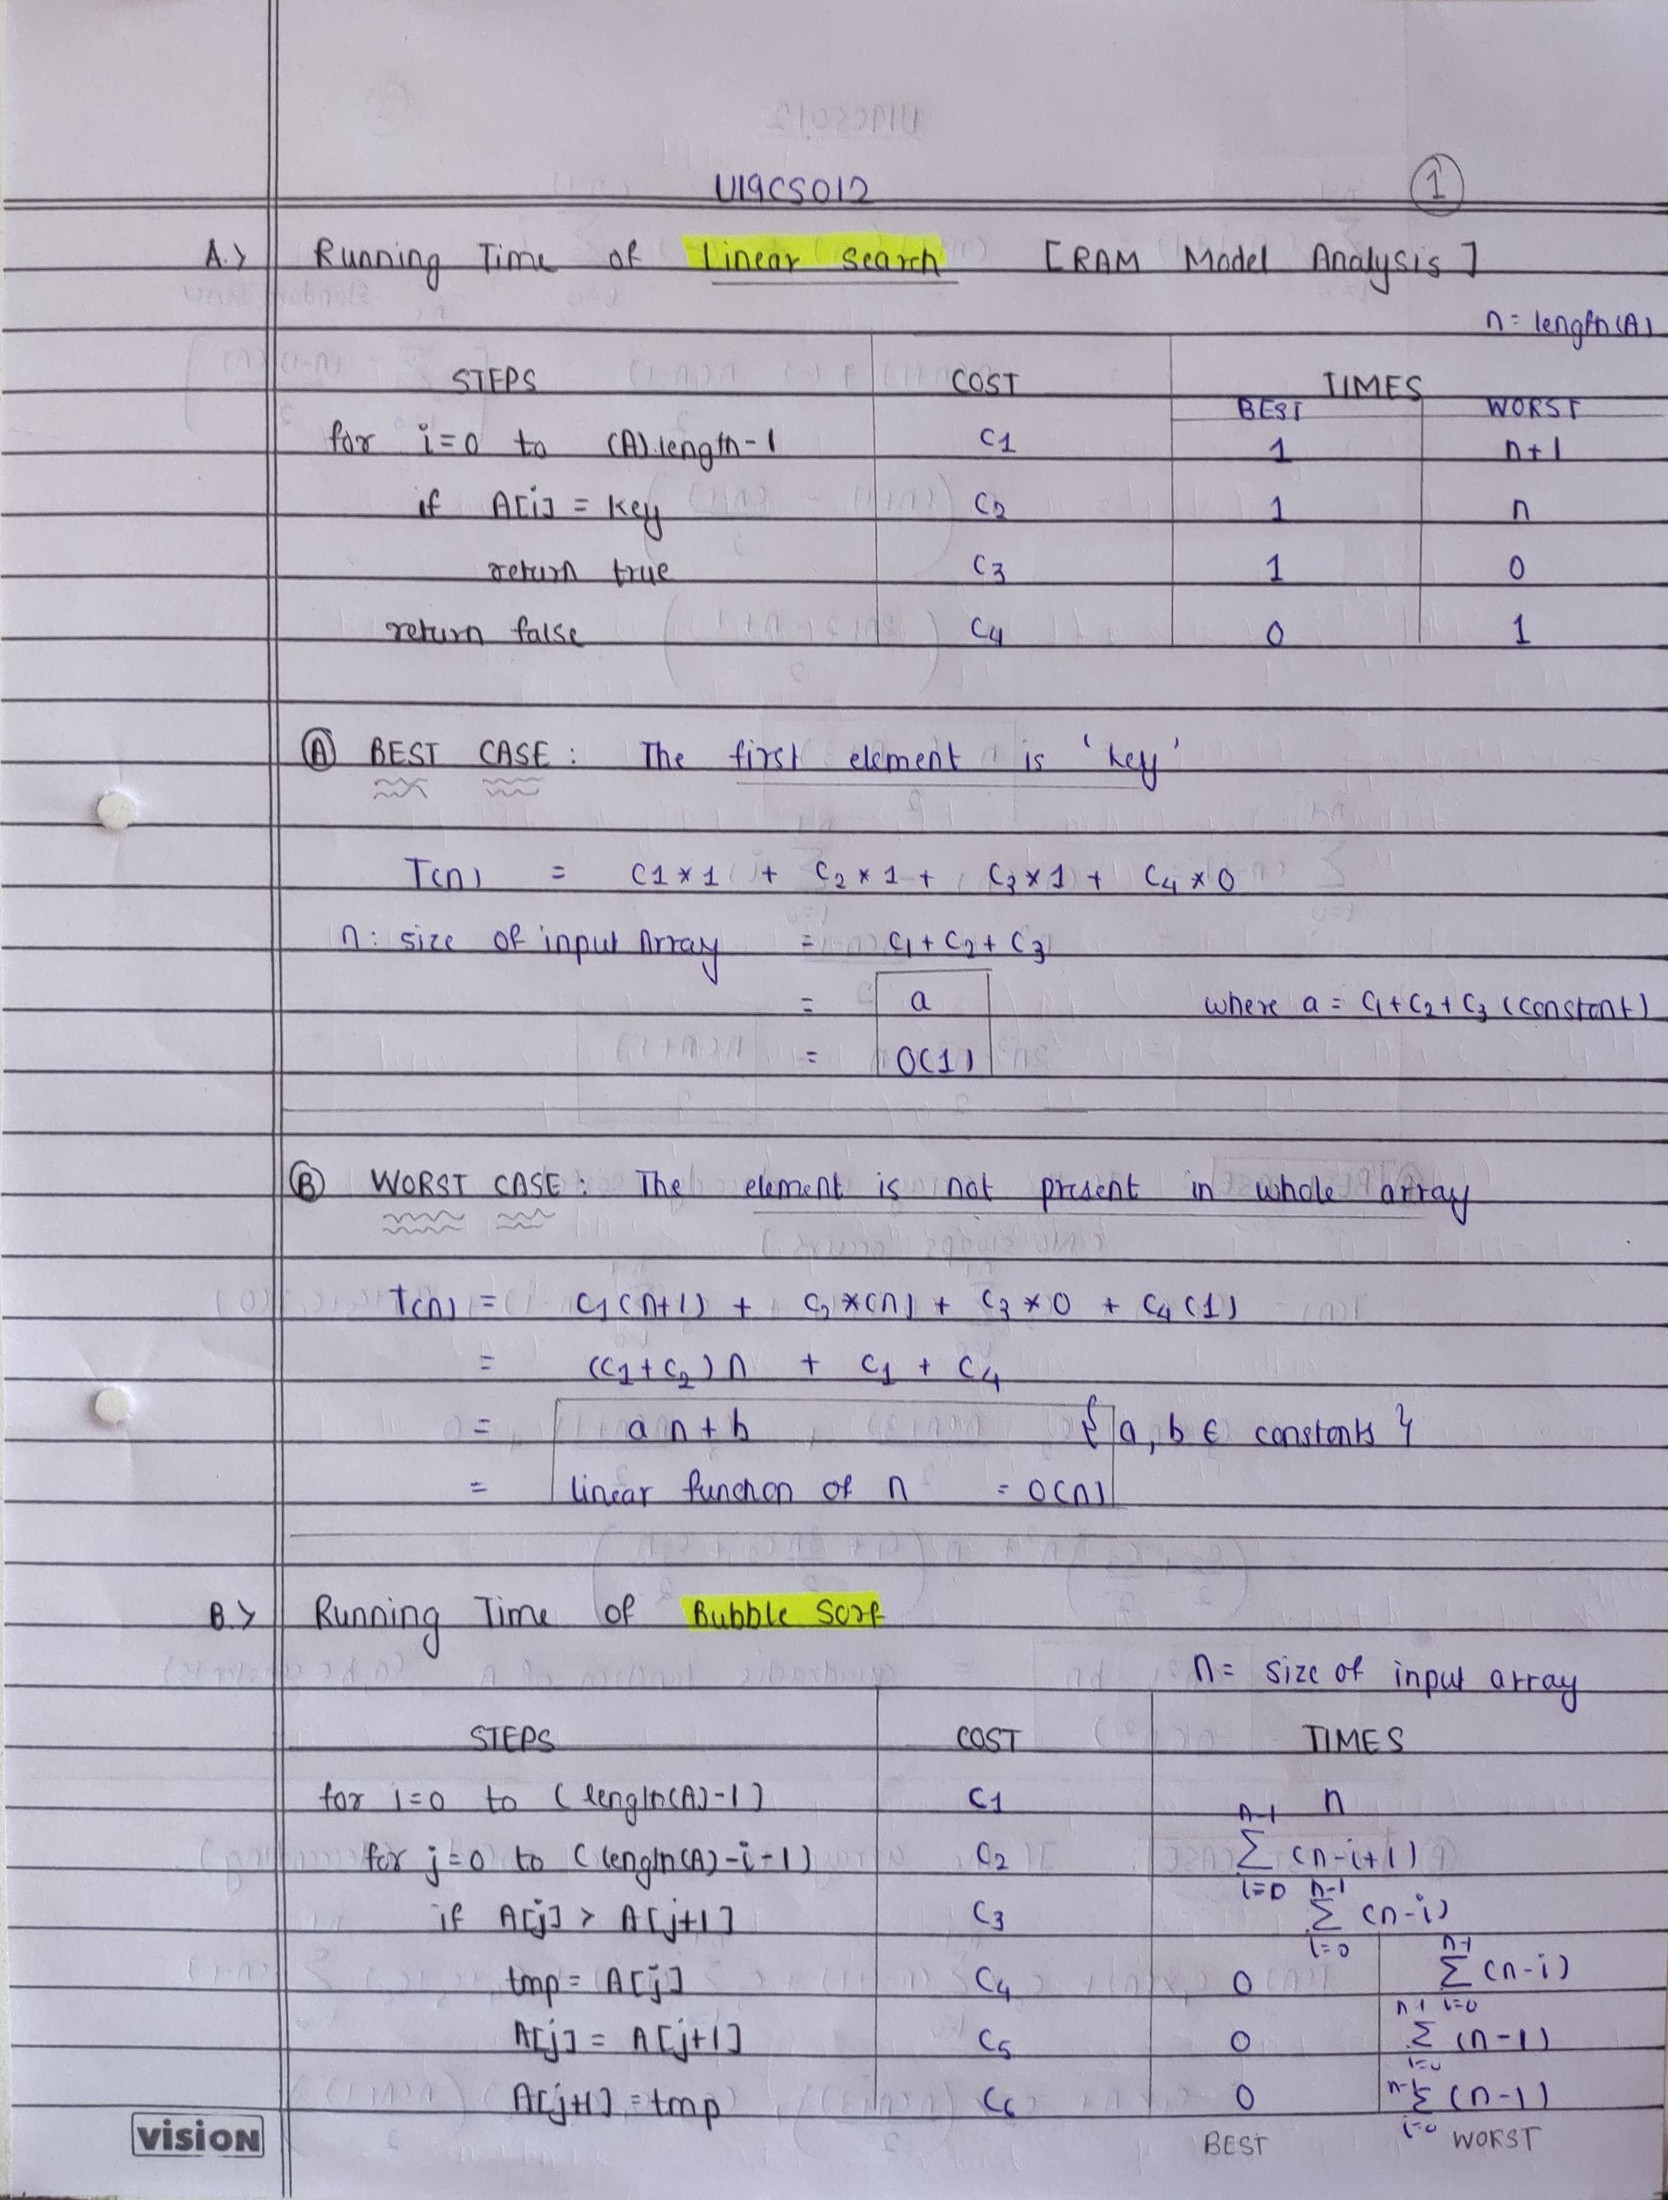 U19CS012 1
A.> Running Time of Linear Search [RAM Model Analysis]
n = length(A)
STEPS COST TIMES
BEST WORST
for i=0 to (A).length-1 C1 1 n+1
if A[i] = key C2 1 n
return true C3 1 0
return false C4 0 1
Ⓐ BEST CASE : The first element is 'key'
T(n) = C1*1 + C2*1 + C3*1 + C4*0
n: size of input Array = C1+C2+C3
= a where a = C1+C2+C3 (constant)
= O(1)
Ⓑ WORST CASE : The element is not present in whole array
T(n) = C1(n+1) + C2*(n) + C3*0 + C4(1)
= (C1+C2)n + C1 + C4
= an+b {a, b ∈ constants}
= linear function of n = O(n)
B.> Running Time of Bubble Sort
n = size of input array
STEPS COST TIMES
for i=0 to (length(A)-1) C1 n
for j=0 to (length(A)-i-1) C2 n-1 Σ i=0 (n-i+1)
if A[j] > A[j+1] C3 n-1 Σ i=0 (n-i)
tmp = A[j] C4 0 n-1 Σ i=0 (n-i)
A[j] = A[j+1] C5 0 n-1 Σ i=0 (n-1)
A[j+1] = tmp C6 0 n-1 Σ i=0 (n-1)
BEST WORST
vision